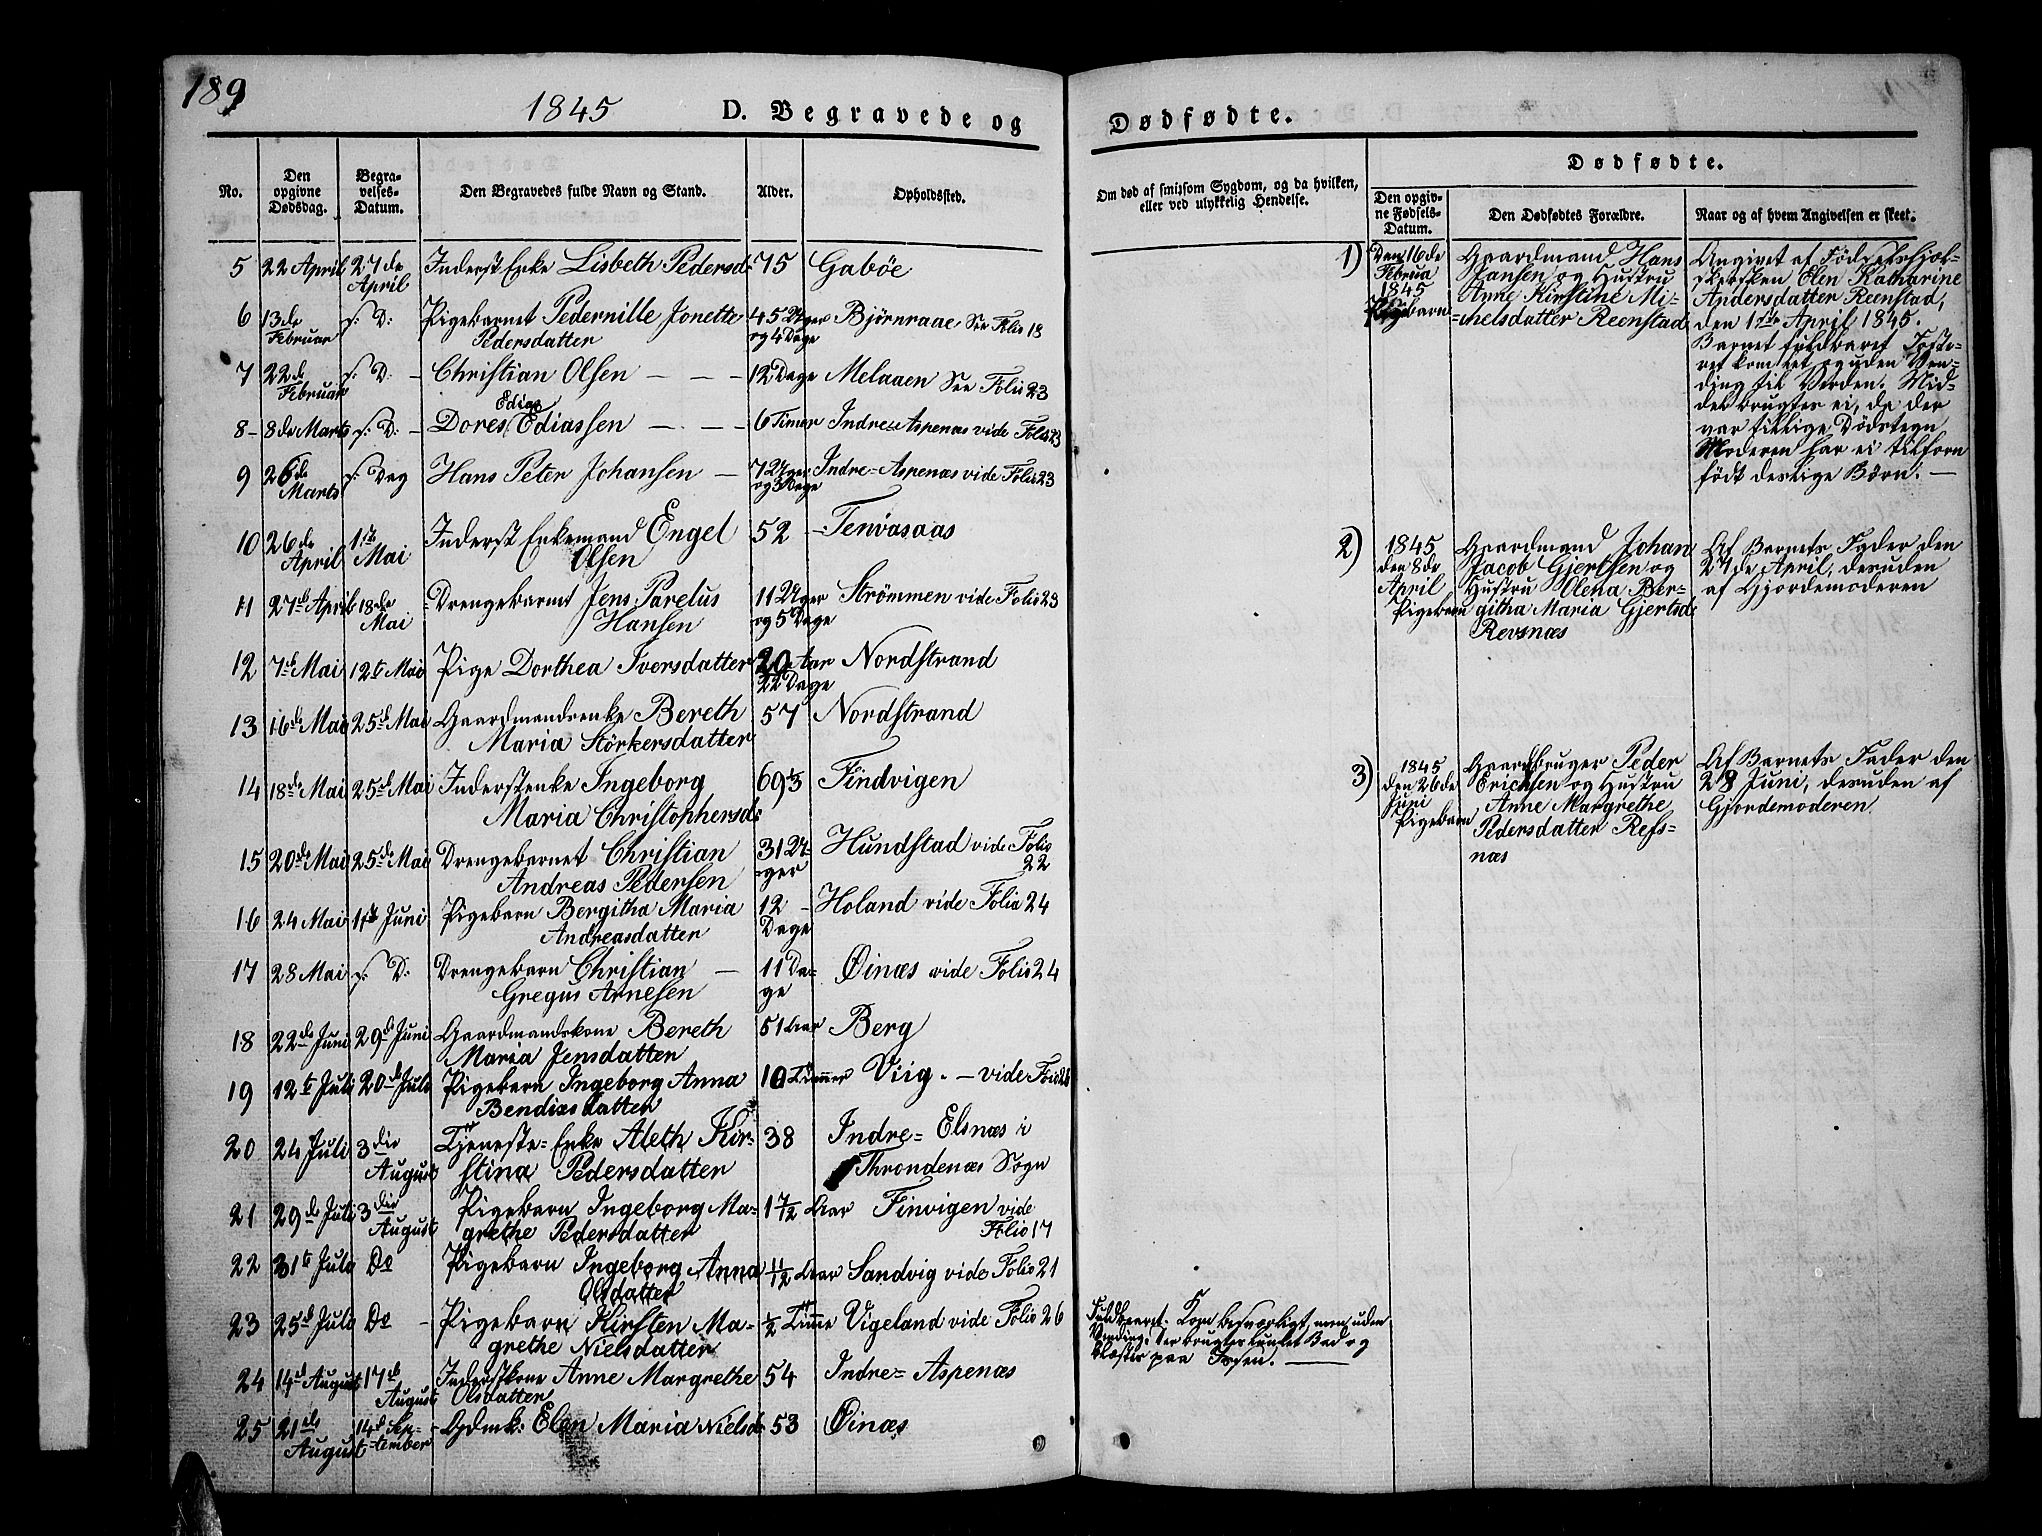 189
1845 D. Begravede og Dødfødte.
No.
Den opgivne Dødsdag.
Begravelses-Datum.
Den Begravedes fulde Navn og Stand.
Alder.
Opholdssted.
Om død af smitsom Sygdom, og da hvilken, eller ved ulykkelig Hendelse.
Dødfødte.
Den opgivne Fødsels-Datum.
Den Dødfødtes Forældre.
Naar og af hvem Angivelsen er skeet.
5 22 April 27de April Inderst Enke Lisbeth Pedersd: 75 Gabøe
6 13de Februar s. D: Pigebarnet Pedernille Jonette 45 Uger Bjørnraae See Folio 18
Pedersdatter og 4 Dage
7 22de Februar s. D: – Christian Olsen — — — 12 Dage Melaaen See Folio 23
Edias
8 – 8de Marts s. D: – Dores Ediassen — – — 6 Timer Indre=Aspenæs vide Folio 23
9 26de Marts s. Dag Hans Peter Johansen — 7 Uger og 3 Dage Indre=Aspenæs vide Folio 23
10 26de April 1ste Mai Inderst Enkemand Engel 52 – Tenvasaas
Olsen
11 27de April 18de Mai Drengebarnet Jens Parelus 11 Uger Strømmen vide Folio 23
Hansen og 5 Dage
12 7de Mai 12te Mai Pige Dorthea Iversdatter 20 Aar Nordstrand
22 Dage
13 16de Mai 25de Mai Gaardmandsenke Bereth 57 Nordstrand
Maria Störkersdatter
14 18de Mai 25de Mai Inderstenke Ingeborg 69 Findvigen
Maria Christophersd:
15 20de Mai 25de Mai Drengebarnet Christian 31 U- Hundstad vide Folio
Andreas Pedersen ger 22
16 24 Mai 1ste Juni Pigebarn Bergitha Maria 12 – Holand vide Folio 24
Andreasdatter Dage
17 28 Mai s. D: Drengebarn Christian — 11 Da- Øinæs vide Folio 24
Gregus Arnesen ge
18 22de Juni 29de Juni Gaardmandskone Bereth 51 Aar Berg
Maria Jensdatter
19 12te Juli 20de Juli Pigebarn Ingeborg Anna 10 Timer Viig. – vide Folio
Bendixsdatter
20 24 Juli 3die August Tjeneste=Enke Aleth Kir- 38 Indre= Elsnæs i
stina Pedersdatter Throndenæs Sogn
21 29de Juli 3die August Pigebarn Ingeborg Ma- 1 7/12 Aar Finvigen vide
grethe Pedersdatter Folio 17
22 31te Juli Do Pigebarn Ingeborg Anna 11/12 Aar Sandvig vide Folio 21
Olsdatter
23 25de Juli Do – Pigebarn Kirsten Ma- 1/2 Time Vigeland vide Folio 26
grethe Nielsdatter
Fuldbaaret. Kom besværligt, men uden
Vending. Der brugtes lunket Bad og
paa Issen. —
24 14de August 17de August Inderstkone Anne Margrethe 54 Indre= Aspenæs
Olsdatter
25 21de August 14de September – Gdmk: Elen Maria Nielsd: 53 Øinæs
1) Den 16de Februa 1845 Pigebarn
Gaardmand Hans
Jansen og Hustru
Anne Kirstine Mi-
chelsdatter Reenstad
Angivet af Fødselshjæl-
persken Elen Katharine
Andersdatter Reenstad,
den 1ste April 1845.
Barnet fuldbaret Foste-
ret kom let og uden Ven-
ding til Verden. Mid-
del brugtes ei, da der
var tillige Dödstegn
Moderen har ei tilforn
födt deslige Börn. —
2) 1845 den 8de April Pigebarn
Gaardmand Johan
Jacob Gjertsen og
Hustru Olena Ber-
githa Maria Gjertsd:
Revsnæs
Af Barnets Fader den
27de April, desuden
af Gjordemoderen
3) 1845 den 26de Juni Pigebarn
Gaardbruger Peder
Erichsen og Hustru
Anne Margrethe
Pedersdatter Refs-
næs
Af Barnets Fader den
28 Juni, desuden af
Gjordemoderen